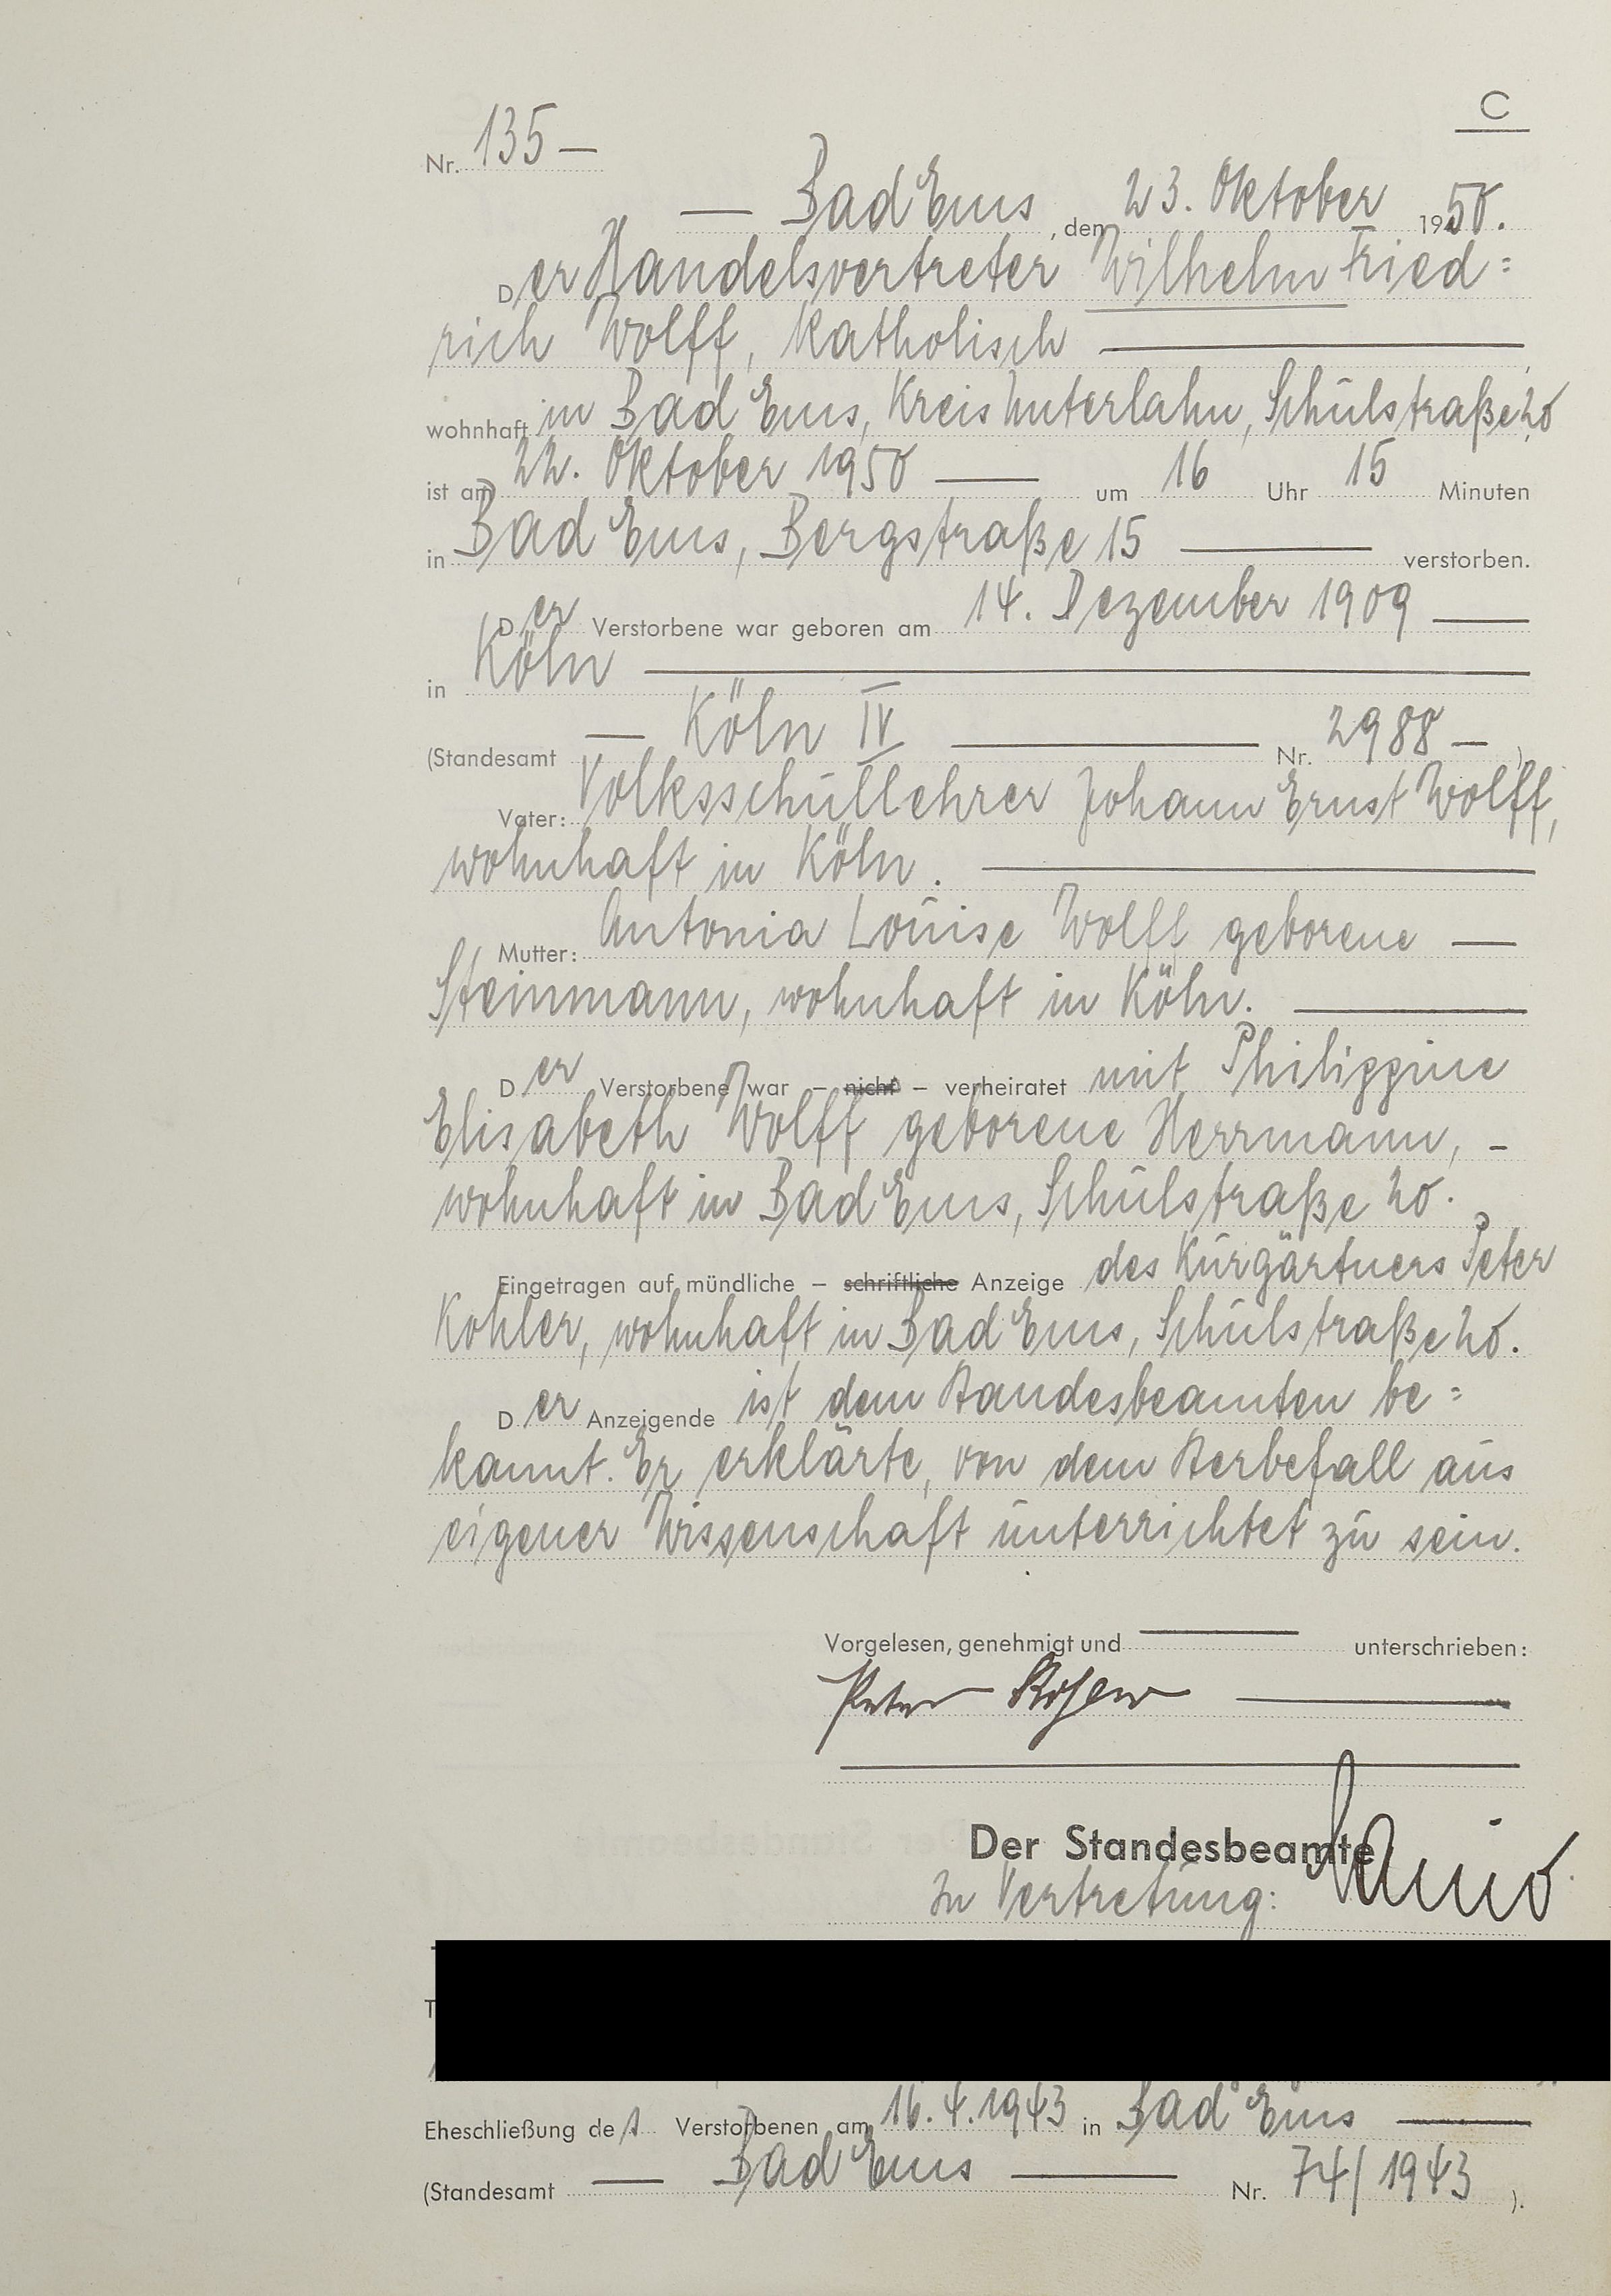 C
Nr. 135 —
— Bad Ems, den 23. Oktober 1950.
Der Handelsvertreter Wilhelm Fried=
rich Wolff, katholisch —
wohnhaft in Bad Ems, Kreis Unterlahn, Schulstraße 20,
ist am 22. Oktober 1950 — um 16 Uhr 15 Minuten
in Bad Ems, Bergstraße 15 — verstorben.
Der Verstorbene war geboren am 14. Dezember 1909 —
in Köln —
(Standesamt — Köln IV — Nr. 2988 — )
Vater: Volksschullehrer Johann Ernst Wolff,
wohnhaft in Köln. —
Mutter: Antonia Louise Wolff geborene —
Steinmann, wohnhaft in Köln. —
Der Verstorbene war – nicht – verheiratet mit Philippine
Elisabeth Wolff geborene Herrmann, –
wohnhaft in Bad Ems, Schulstraße 20.
Eingetragen auf mündliche – schriftliche Anzeige des Kurgärtners Peter
Kohler, wohnhaft in Bad Ems, Schulstraße 20.
Der Anzeigende ist dem Standesbeamten be=
kannt. Er erklärte, von dem Sterbefall aus
eigener Wissenschaft unterrichtet zu sein.
Vorgelesen, genehmigt und — unterschrieben:
Peter —
Der Standesbeamte
In Vertretung:
Eheschließung des Verstorbenen am 16.4.1943 in Bad Ems —
(Standesamt — Bad Ems — Nr. 74/1943 ).